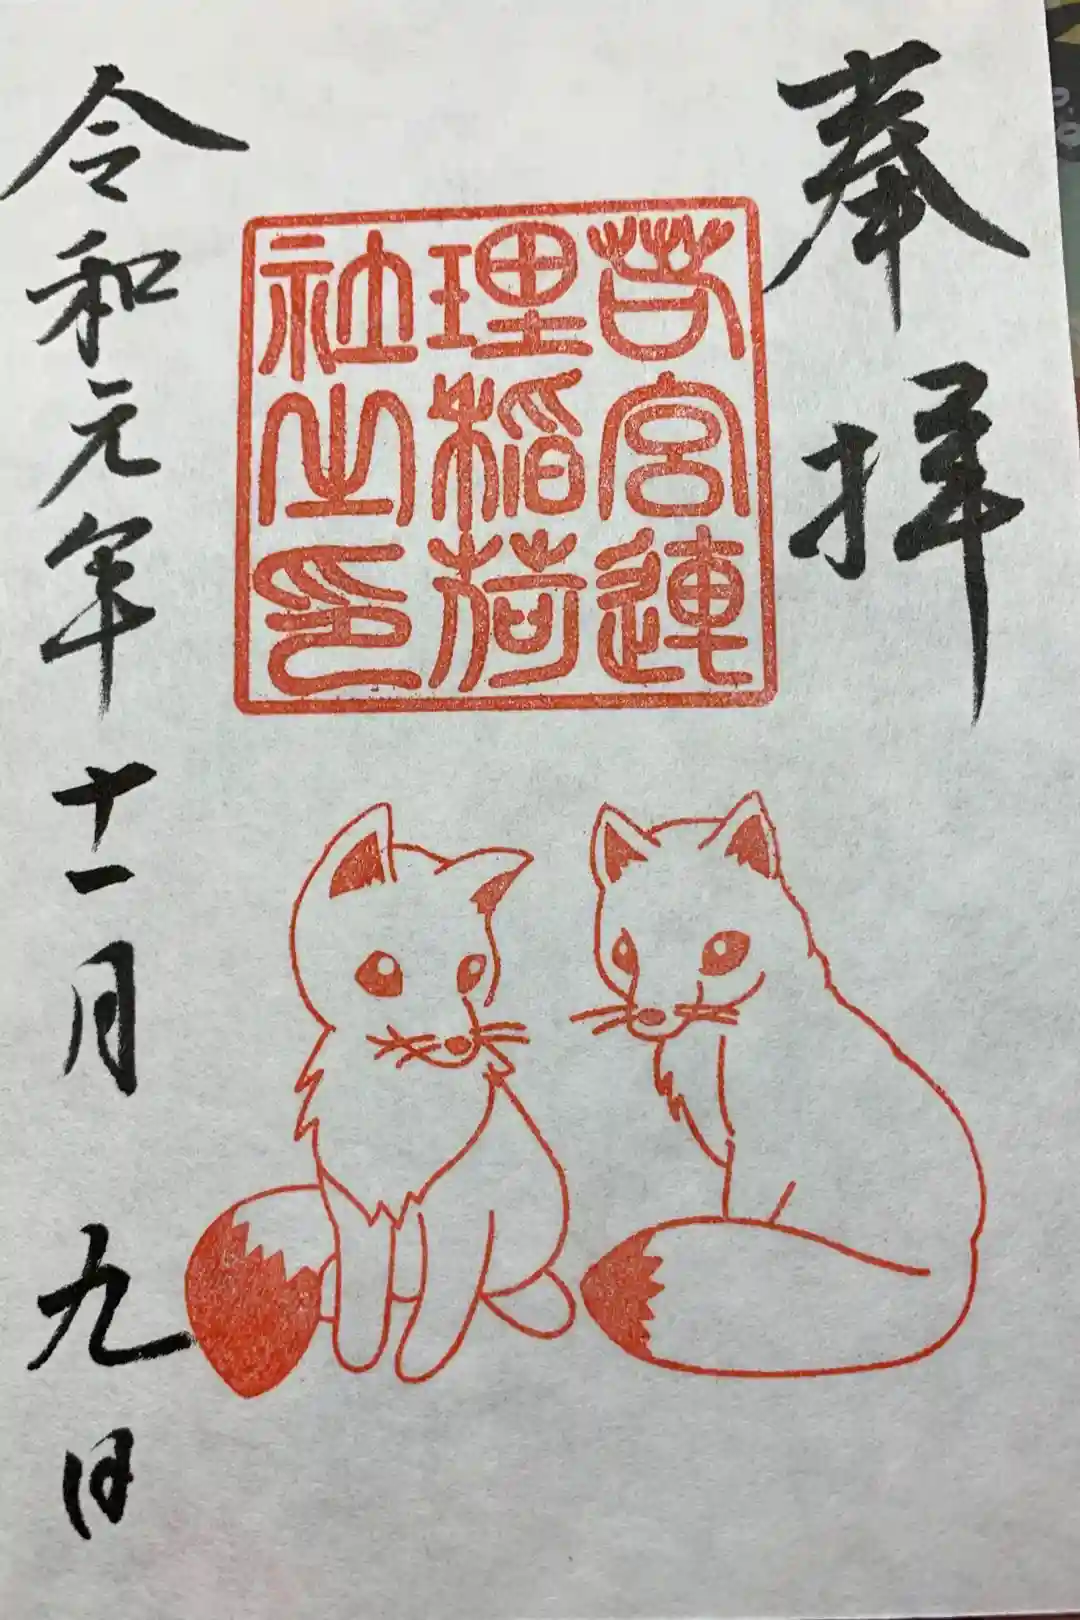 奉拝
若宮連
理稲荷
社之印
令和元年十一月九日